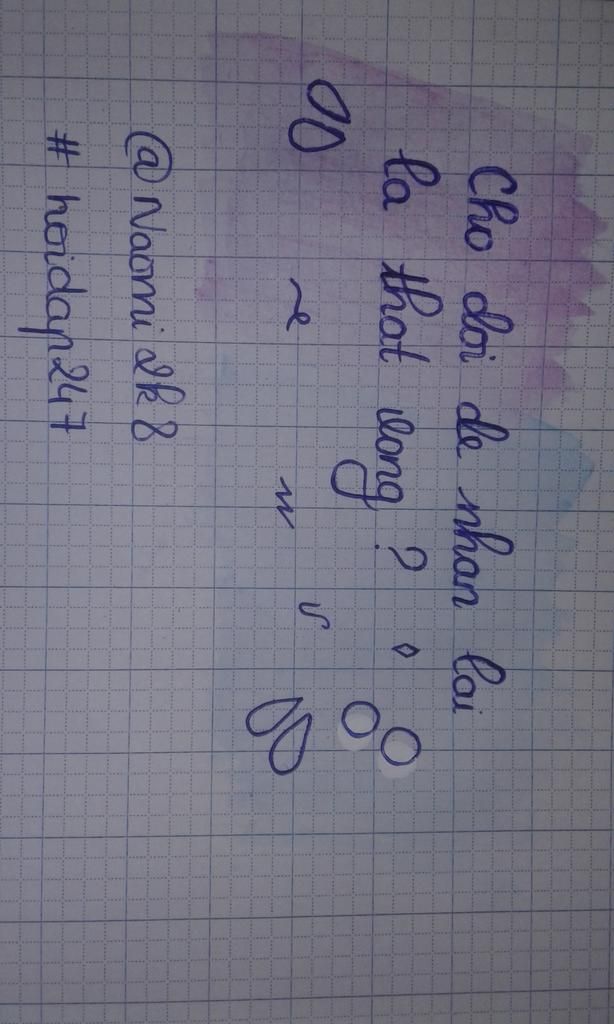 Cho doi de nhan lai
la that vong ?
@Naomi 2k8
# hoidap247